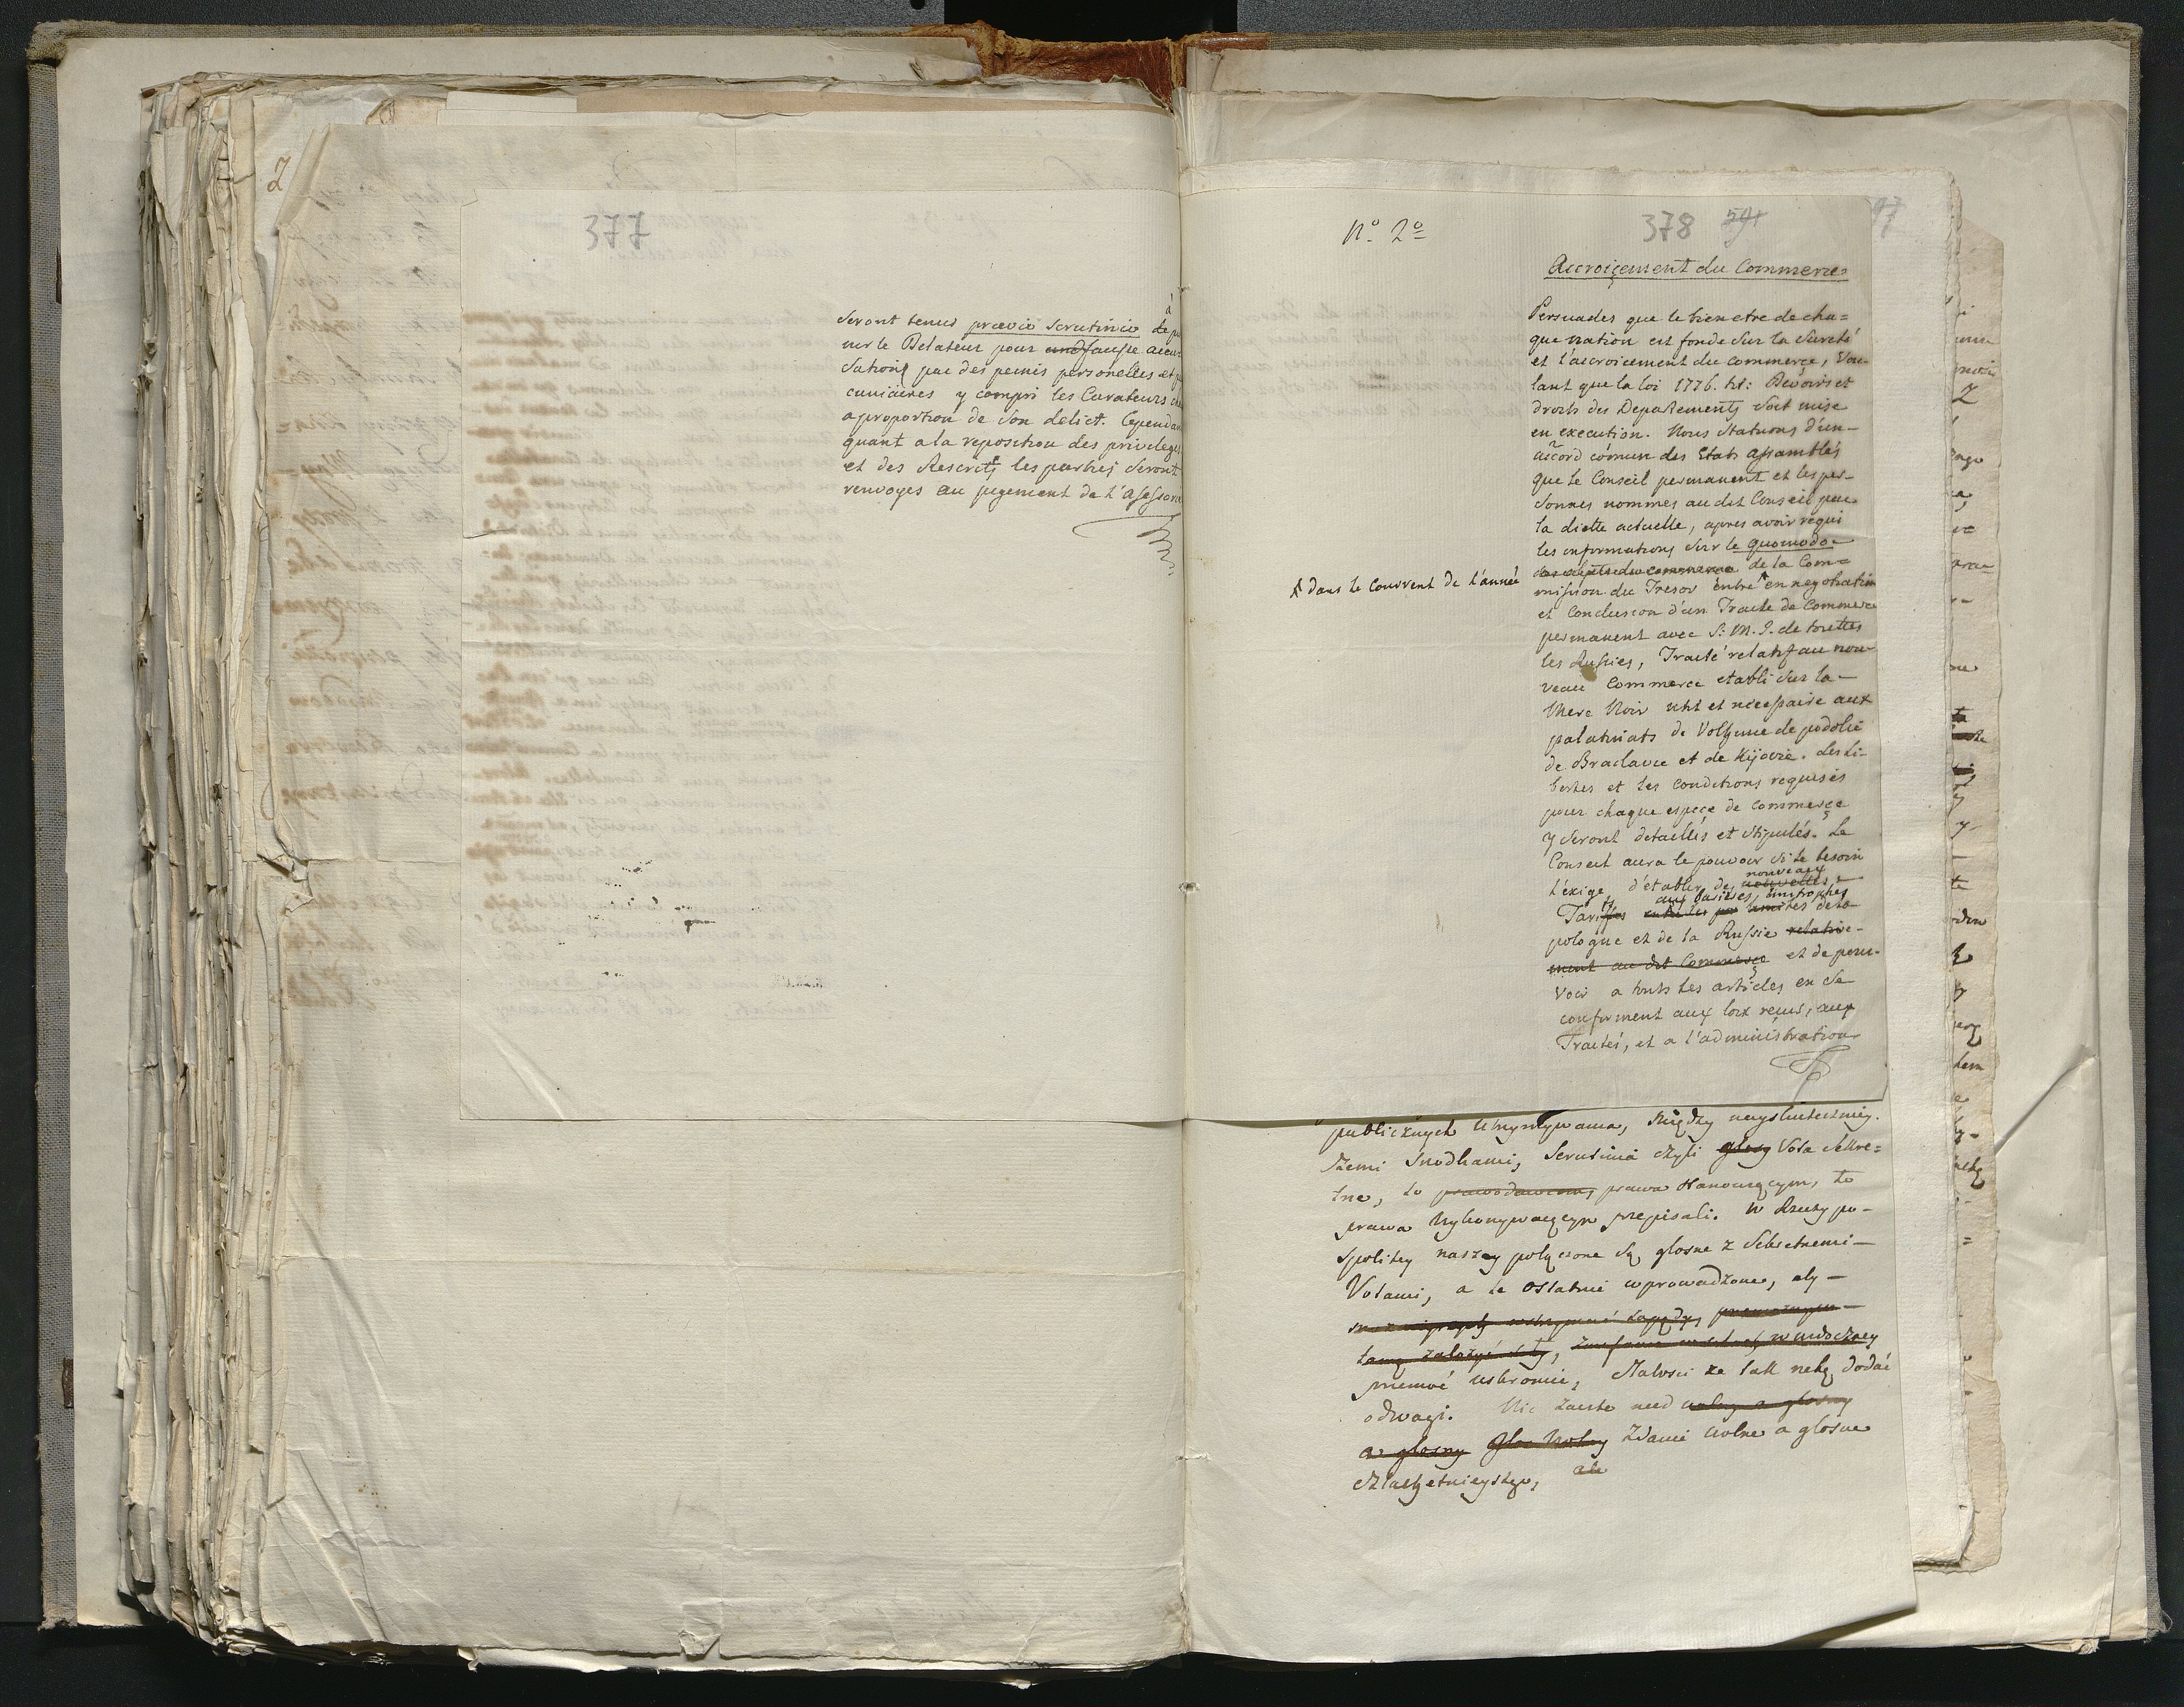 377
à
seront tenus praevio Scrutinio de pu
nir le Delateur pour une fausse accu
sations par des peines personelles et pe
cuniaires y compri les Curateurs
a proportion de son delict. Cependan
quant a la reposition des privileges
et des Rescrits les parties seront
renvoyes au jugement de l'Assessorie
N.º 2º
378 54
97
Accroiçement du Commerce
Persuades que le bien etre de cha=
que nation est fonde sur la Sureté
et l'accroicement du Commerçe, Vou-
lant que la loi 1776. tit: Devoirs et
droits des Departements soit mise
en execution. Nous statuons d'un-
accord comun des Etats assamblés
que le Conseil permanent et les per-
sonnes nommes au dit Conseil par
la diette actuelle, apres avoir reçui
les informations sur le quomodo
des objets du commerce de la Com=
mission du Tresor entre en negotiation
* dans le courrent de l'année
et Conclusion d'un Traite de Commerce
permanent avec S. M. I. de touttes
les Russies, Traité relatif au nou-
veau Commerce etabli sur la-
Mere Noir util et necessaire aux
palatinats de Volhynie de podolie
de Braclavie et de Kijovie. Les li-
bertes et les Conditions requises
pour chaque espeçe de commerçe
y seront detaillés et stipulés. Le
Conseil aura le pouvoir si le besoin
l'exige d'etablir des nouvelles
nouveaux
aux barieres limitrophes
Tariffes entre les limites de la
pologne et de la Russie relative-
ment au dit Commerce et de pour-
voir a touts les articles en se
conforment aux loix reçus, aux
Traités, et a l'administration
publicznych utrzymywania, między nayskuteczniey-
szemi srodkami, Scrutinia czyli głosy Vota sekre=
tne, to prawodawcom, prawa stanowiącym, to
prawa wykonywaiącym przepisali. W Rzeczypo-
spolitey naszey połączone są głosne z sekretnemi-
Votami, a te ostatnie wprowadzone, aby-
tamę założyć
przemoc uskromić, słabości ze tak rzekę dodać
odwagi. Nic zaiste nad wolny a głosny
a głosny Głos Wolny Zdanie wolne a głosne
szlachetnieyszego, ale